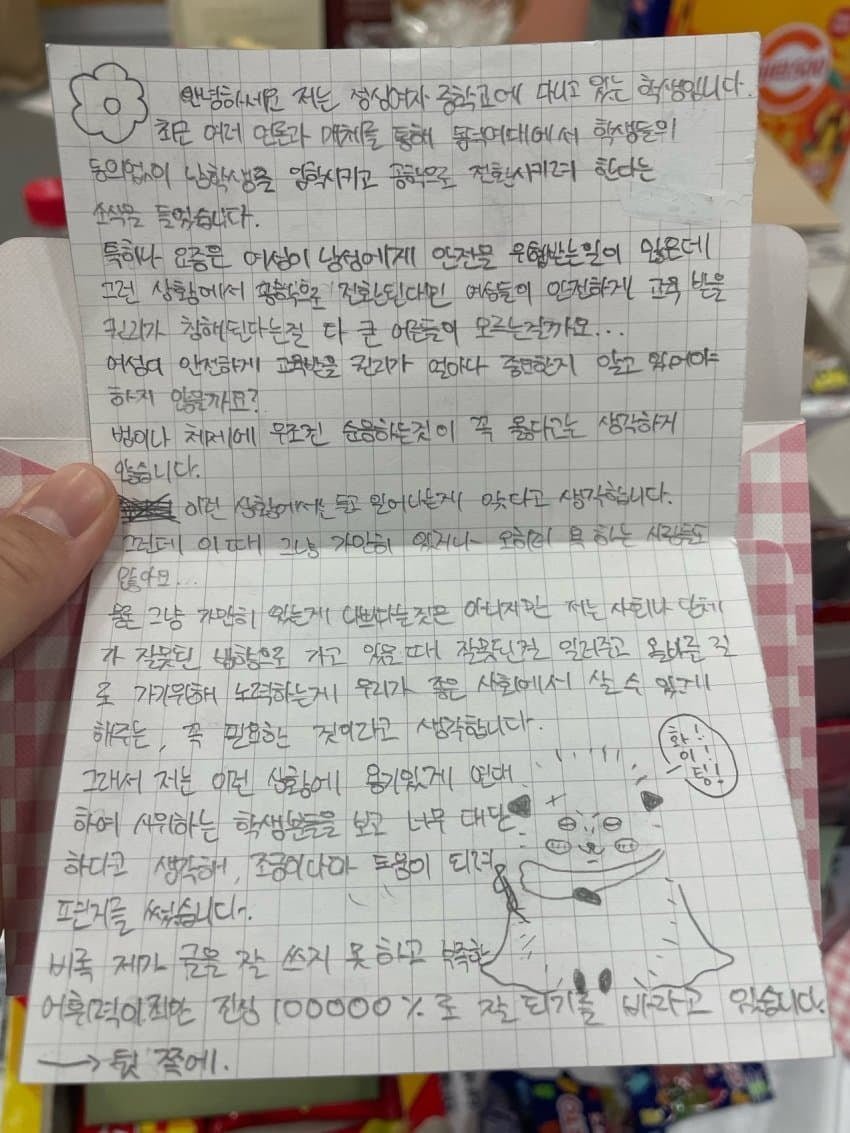 안녕하세요 저는 정심여자 중학교에 다니고 있는 학생입니다.
최근 여러 언론과 매체를 통해 동덕여대에서 학생들의
동의없이 남학생을 입학시키고 공학으로 전환시키려 한다는
소식을 들었습니다.
특히나 요즘은 여성이 남성에게 안전을 위협받는일이 많은데
그런 상황에서 공학으로 전환된다면 여성들의 안전하게 교육 받을
권리가 침해된다는걸 다 큰 어른들이 모르는걸까요...
여성이 안전하게 교육받을 권리가 얼마나 중요한지 알고 있어야
하지 않을까요?
법이나 체제에 무조건 순응하는것이 꼭 옳다고는 생각하지
않습니다.
이런 상황에서는 들고 일어나는게 맞다고 생각합니다.
그런데 이때 그냥 가만히 있거나 오히려 욕 하는 사람들도
많아요...
물론 그냥 가만히 있는게 나쁘다는것은 아니지만 저는 사회나 단체
가 잘못된 방향으로 가고 있을때 잘못된걸 알려주고 올바를 길
로 가기위해 노력하는게 우리가 좋은 사회에서 살 수 있게
해주는, 꼭 필요한 것이라고 생각합니다.
그래서 저는 이런 상황에 용기있게 연대
하여 시위하는 학생분들을 보고 너무 대단
하다고 생각해, 조금이나마 도움이 되려
편지를 썼습니다.
비록 제가 글을 잘 쓰지 못 하고 부족한
어휘력이지만 진심 100000%로 잘 되기를 바라고 있습니다.
→ 뒷 쪽에.
화!
이!
팅!